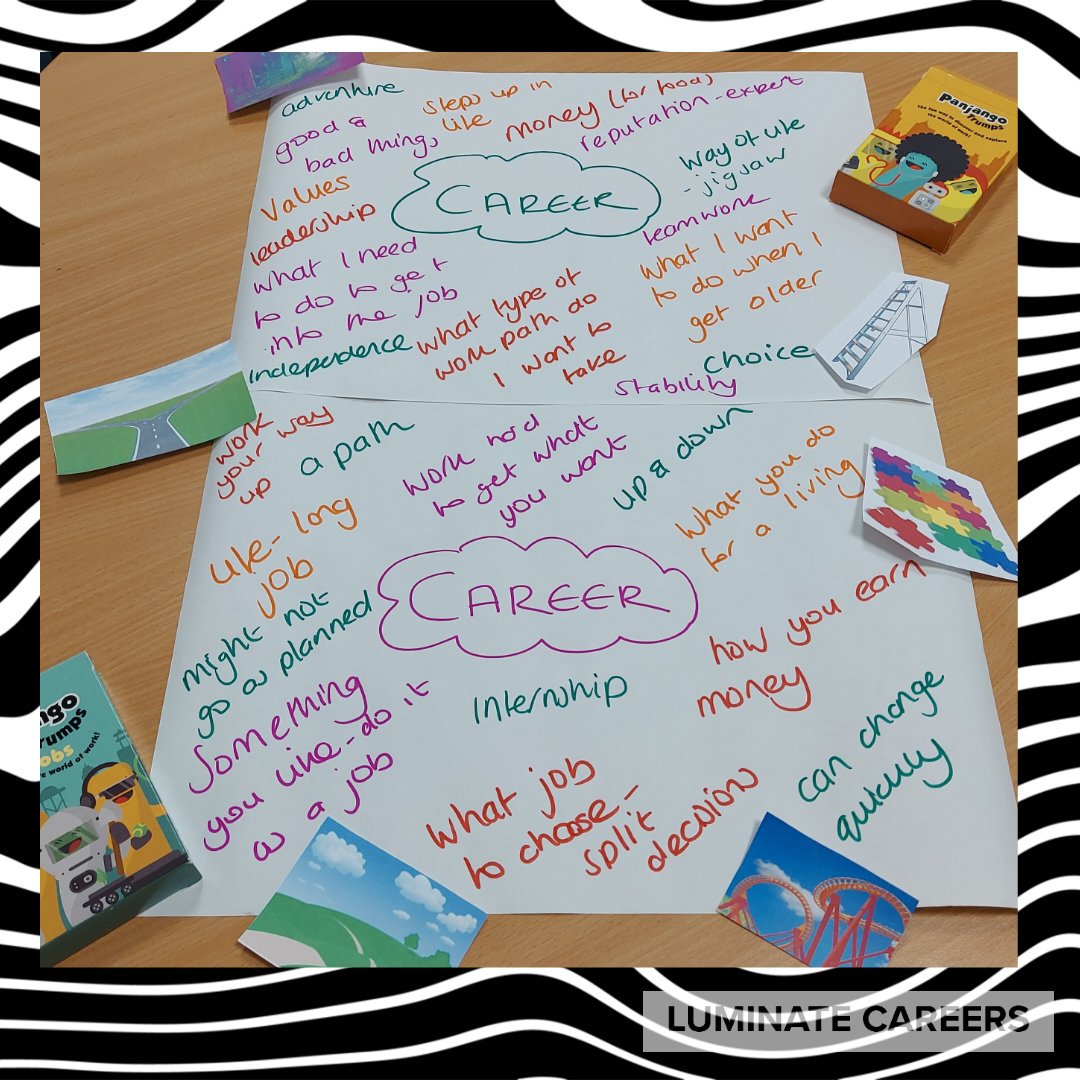 adventure
steps up in
life
money (for food)
reputation - expert
good &
bad things
CAREER
way of life
- jigsaw
values
leadership
teamwork
what I need
to do to get
into the job
what I want
to do when I
get older
what type of
work path do
I want to
take
independence
choice
stability
work
your way
up
a path
work hard
to get what
you want
up & down
what you do
for a living
life-long
job
CAREER
might not
go as planned
how you earn
money
Internship
Something
you like - do it
as a job
can change
quickly
what job
to choose -
split
decision
Panjango
Trumps
The fun way to discover and explore
the world of work!
ngo
rumps
obs
e world of work!
LUMINATE CAREERS